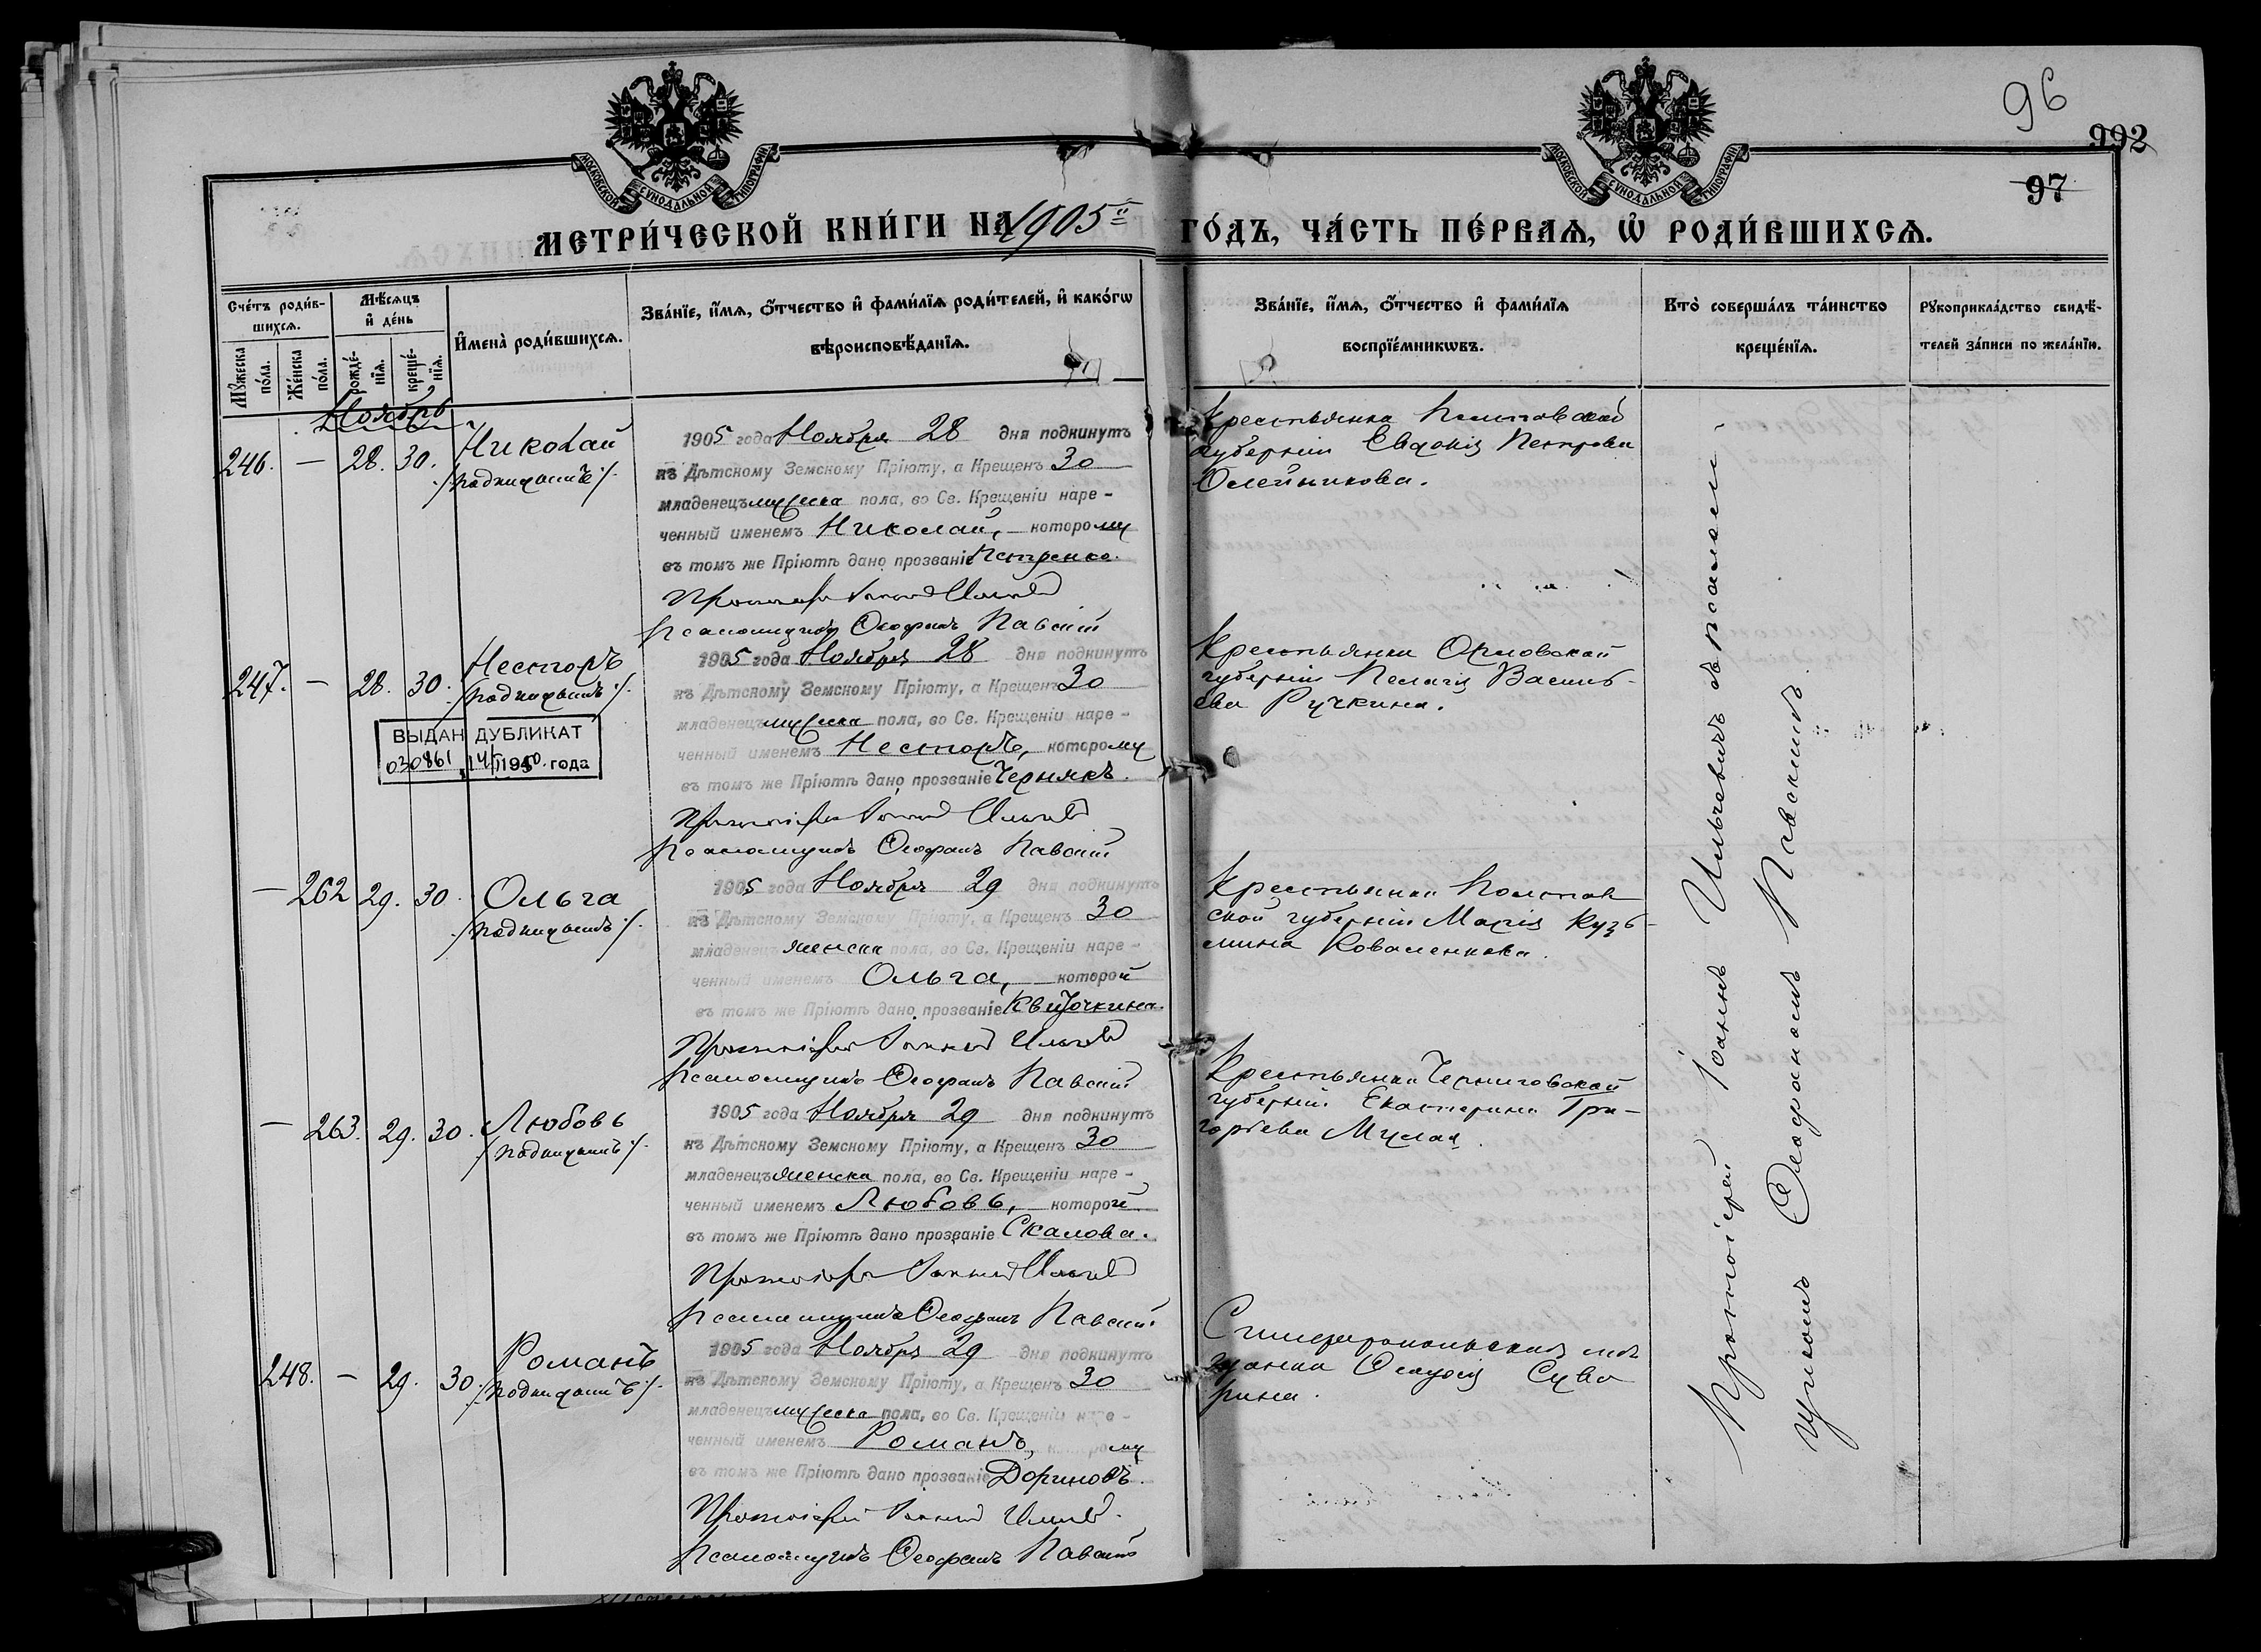 96
992
97
МОСКОВСКОЙ СѴНОДАЛЬНОЙ ТИПОГРАФІИ
МОСКОВСКОЙ СѴНОДАЛЬНОЙ ТИПОГРАФІИ
МЕТРИ́ЧЕСКОЙ КНИ́ГИ НА 1905й ГО́ДЪ, ЧА́СТЬ ПЕ́РВАѦ, Ѡ҆ РОДИ́ВШИХСѦ.
Сче́тъ роди́в-
шихсѧ.
Мꙋ́жеска по́ла.
Же́нска по́ла.
Мѣ́сѧцъ и҆ де́нь
рожде́-нїѧ.
креще́-нїѧ.
И҆мена̀ роди́вшихсѧ.
Зва́нїе, и҆́мѧ, ѻ҆́тчество и҆ фами́лїѧ роди́телей, и҆ како́гѡ
вѣроисповѣ́данїѧ.
Зва́нїе, и҆́мѧ, ѻ҆́тчество и҆ фами́лїѧ
воспрїе́мникѡвъ.
Кто̀ соверша́лъ та́инство
креще́нїѧ.
Рꙋкоприкла́дство свидѣ́-
телей за́писи по жела́нїю.
Ноябрь
246. — 28. 30. Николай
/подкидышъ/.
1905 года Ноября 28 дня подкинутъ
къ Дѣтскому Земскому Пріюту, а Крещенъ 30
младенецъ мужеска пола, во Св. Крещеніи наре-
ченный именемъ Николай, которому
въ томъ же Пріютѣ дано прозваніе Петренко.
Протоіерей Іоаннъ Ильчевичъ
Псаломщикъ Ѳеофанъ Павскій
Крестьянка Полтавской
губерніи Евдокія Петрова
Олейникова.
247. — 28. 30. Несторъ
/подкидышъ/.
ВЫДАН ДУБЛИКАТ
030861 1950 года
1905 года Ноября 28 дня подкинутъ
къ Дѣтскому Земскому Пріюту, а Крещенъ 30
младенецъ мужеска пола, во Св. Крещеніи наре-
ченный именемъ Несторъ, которому
въ томъ же Пріютѣ дано прозваніе Чернякъ.
Протоіерей Іоаннъ Ильчевичъ
Псаломщикъ Ѳеофанъ Павскій
Крестьянка Орловской
губерніи Пелагія Василь-
ева Ручкина.
— 262 29. 30. Ольга
/подкидышъ/.
1905 года Ноября 29 дня подкинутъ
къ Дѣтскому Земскому Пріюту, а Крещенъ 30
младенецъ женска пола, во Св. Крещеніи наре-
ченный именемъ Ольга, которой
въ томъ же Пріютѣ дано прозваніе Квиточкина.
Протоіерей Іоаннъ Ильчевичъ
Псаломщикъ Ѳеофанъ Павскій
Крестьянка Полтав
ской губерніи Марія Кузь-
мина Коваленкова.
— 263. 29. 30. Любовь
/подкидышъ/.
1905 года Ноября 29 дня подкинутъ
къ Дѣтскому Земскому Пріюту, а Крещенъ 30
младенецъ женска пола, во Св. Крещеніи наре-
ченный именемъ Любовь, которой
въ томъ же Пріютѣ дано прозваніе Скалова.
Протоіерей Іоаннъ Ильчевичъ
Псаломщикъ Ѳеофанъ Павскій
Крестьянка Черниговской
губерніи Екатерина Гри-
горьева
248. — 29. 30. Романъ
/подкидышъ/.
1905 года Ноября 29 дня подкинутъ
къ Дѣтскому Земскому Пріюту, а Крещенъ 30
младенецъ мужеска пола, во Св. Крещеніи наре-
ченный именемъ Романъ, которому
въ томъ же Пріютѣ дано прозваніе Дориновъ.
Протоіерей Іоаннъ Ильчевичъ
Псаломщикъ Ѳеофанъ Павскій
Симферопольская мѣ
щанка Ѳеодосія Суво
рина.
Протоіерей Іоаннъ Ильчевичъ съ псалом-
щикомъ Ѳеофаномъ Павскимъ.